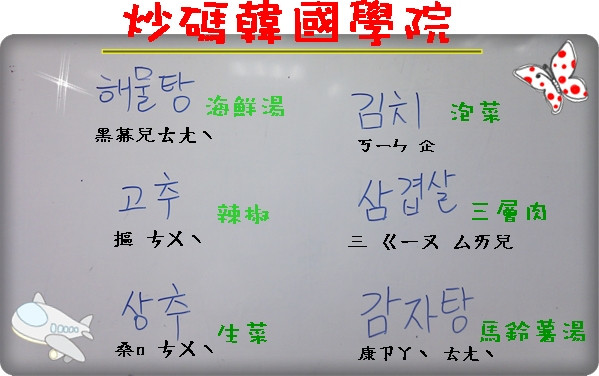 炒碼韓國學院
해물탕 海鮮湯
黑幕兒ㄊㄤˋ
김치 泡菜
ㄎㄧㄣ 企
고추 辣椒
摳 ㄘㄨˋ
삼겹살 三層肉
三 ㄍㄧㄡ ㄙㄞ兒
상추 生菜
桑ㅁ ㄘㄨˋ
감자탕 馬鈴薯湯
康ㄗㄚˋ ㄊㄤˋ